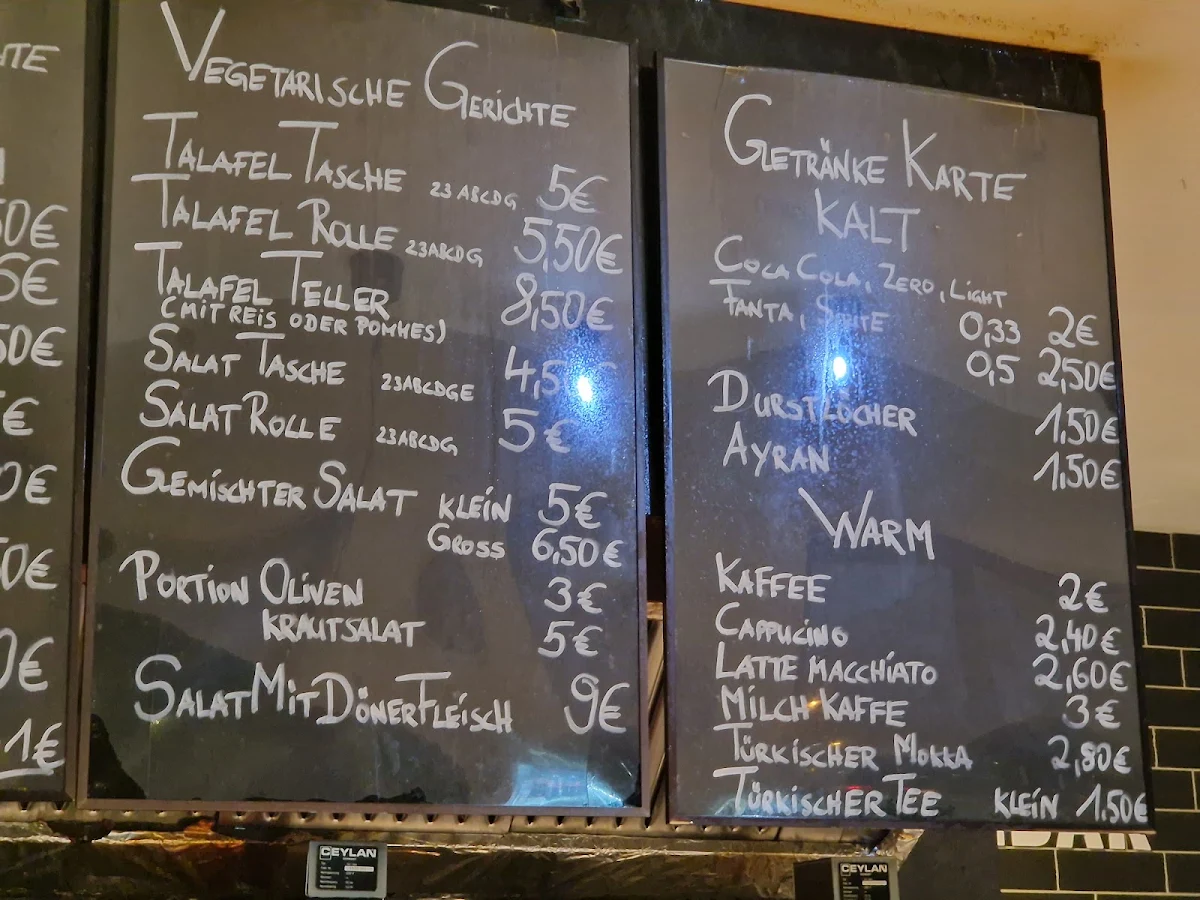 HTE
50€
5€
50€
€
0€
50€
0€
1€
VEGETARISCHE GERICHTE
TALAFEL TASCHE 23 ABCDG 5€
TALAFEL ROLLE 23ABCDG 5,50€
TALAFEL TELLER 8,50€
(MIT REIS ODER POMMES)
SALAT TASCHE 23ABCDGE 4,5
SALAT ROLLE 23ABCDG 5€
GEMISCHTER SALAT KLEIN 5€
GROSS 6,50€
PORTION OLIVEN 3€
KRAUTSALAT 5€
SALAT MIT DÖNERFLEISCH 9€
GETRÄNKE KARTE
KALT
COCA COLA, ZERO, LIGHT
FANTA, SPRITE 0,33 2€
0,5 2,50€
DURSTLÖCHER 1,50€
AYRAN 1,50€
WARM
KAFFEE 2€
CAPPUCINO 2,40€
LATTE MACCHIATO 2,60€
MILCH KAFFE 3€
TÜRKISCHER MOKKA 2,80€
TÜRKISCHER TEE KLEIN 1,50€
CEYLAN
CEYLAN